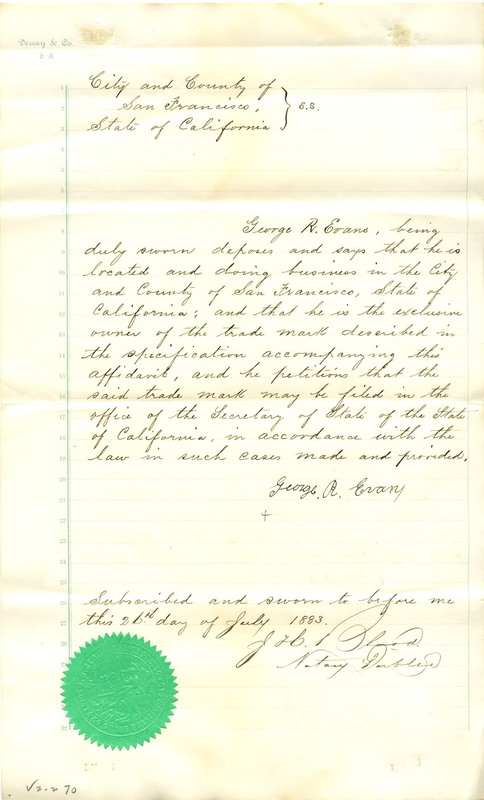 Dewey & Co.
S. F.
City and County of
San Francisco, } s.s.
State of California
George R. Evans, being
duly sworn deposes and says that he is
located and doing business in the City
and County of San Francisco, State of
California; and that he is the exclusive
owner of the trade mark described in
the specification accompanying this
affidavit, and he petitions that the
said trade mark may be filed in the
office of the Secretary of State of the State
of California, in accordance with the
law in such cases made and provided.
George. R. Evans
Subscribed and sworn to before me
this 26th day of July 1883.
Notary Public
V2-270